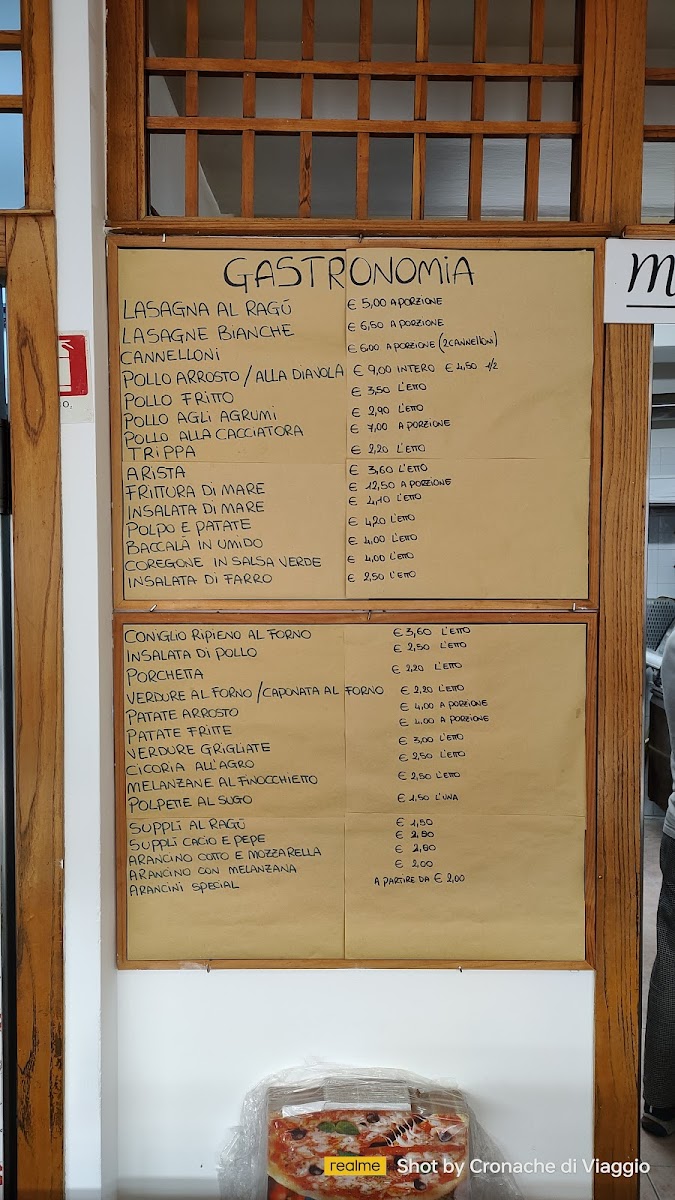 GASTRONOMIA
LASAGNA AL RAGÚ € 5,00 A PORZIONE
LASAGNE BIANCHE € 6,50 A PORZIONE
CANNELLONI € 6,00 A PORZIONE (2 CANNELLONI)
POLLO ARROSTO / ALLA DIAVOLA € 9,00 INTERO € 4,50 1/2
POLLO FRITTO € 3,50 L'ETTO
POLLO AGLI AGRUMI € 2,90 L'ETTO
POLLO ALLA CACCIATORA € 7,00 A PORZIONE
TRIPPA € 2,20 L'ETTO
ARISTA € 3,60 L'ETTO
FRITTURA DI MARE € 12,50 A PORZIONE
INSALATA DI MARE € 4,10 L'ETTO
POLPO E PATATE € 4,20 L'ETTO
BACCALÀ IN UMIDO € 4,00 L'ETTO
COREGONE IN SALSA VERDE € 4,00 L'ETTO
INSALATA DI FARRO € 2,50 L'ETTO
CONIGLIO RIPIENO AL FORNO € 3,60 L'ETTO
INSALATA DI POLLO € 2,50 L'ETTO
PORCHETTA € 2,20 L'ETTO
VERDURE AL FORNO / CAPONATA AL FORNO € 2,20 L'ETTO
PATATE ARROSTO € 4,00 A PORZIONE
PATATE FRITTE € 4,00 A PORZIONE
VERDURE GRIGLIATE € 3,00 L'ETTO
CICORIA ALL'AGRO € 2,50 L'ETTO
MELANZANE AL FINOCCHIETTO € 2,50 L'ETTO
POLPETTE AL SUGO € 1,50 L'UNA
SUPPLÌ AL RAGÚ € 1,50
SUPPLÌ CACIO E PEPE € 2,50
ARANCINO COTTO E MOZZARELLA € 2,50
ARANCINO CON MELANZANA € 2,00
ARANCINI SPECIAL A PARTIRE DA € 2,00
realme Shot by Cronache di Viaggio